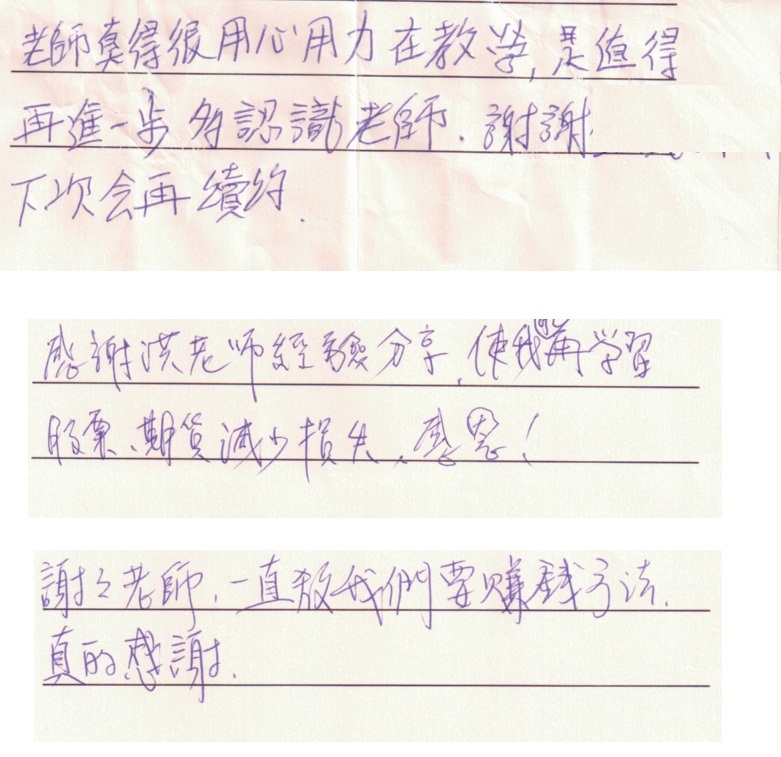 老師真得很用心用力在教學,是值得
再進一步多認識老師.謝謝
下次会再續約.
感謝洪老師經驗分享,使我們再學習
股票、期貨減少損失、感恩!
謝々老師.一直教我們要賺錢方法.
真的感謝.